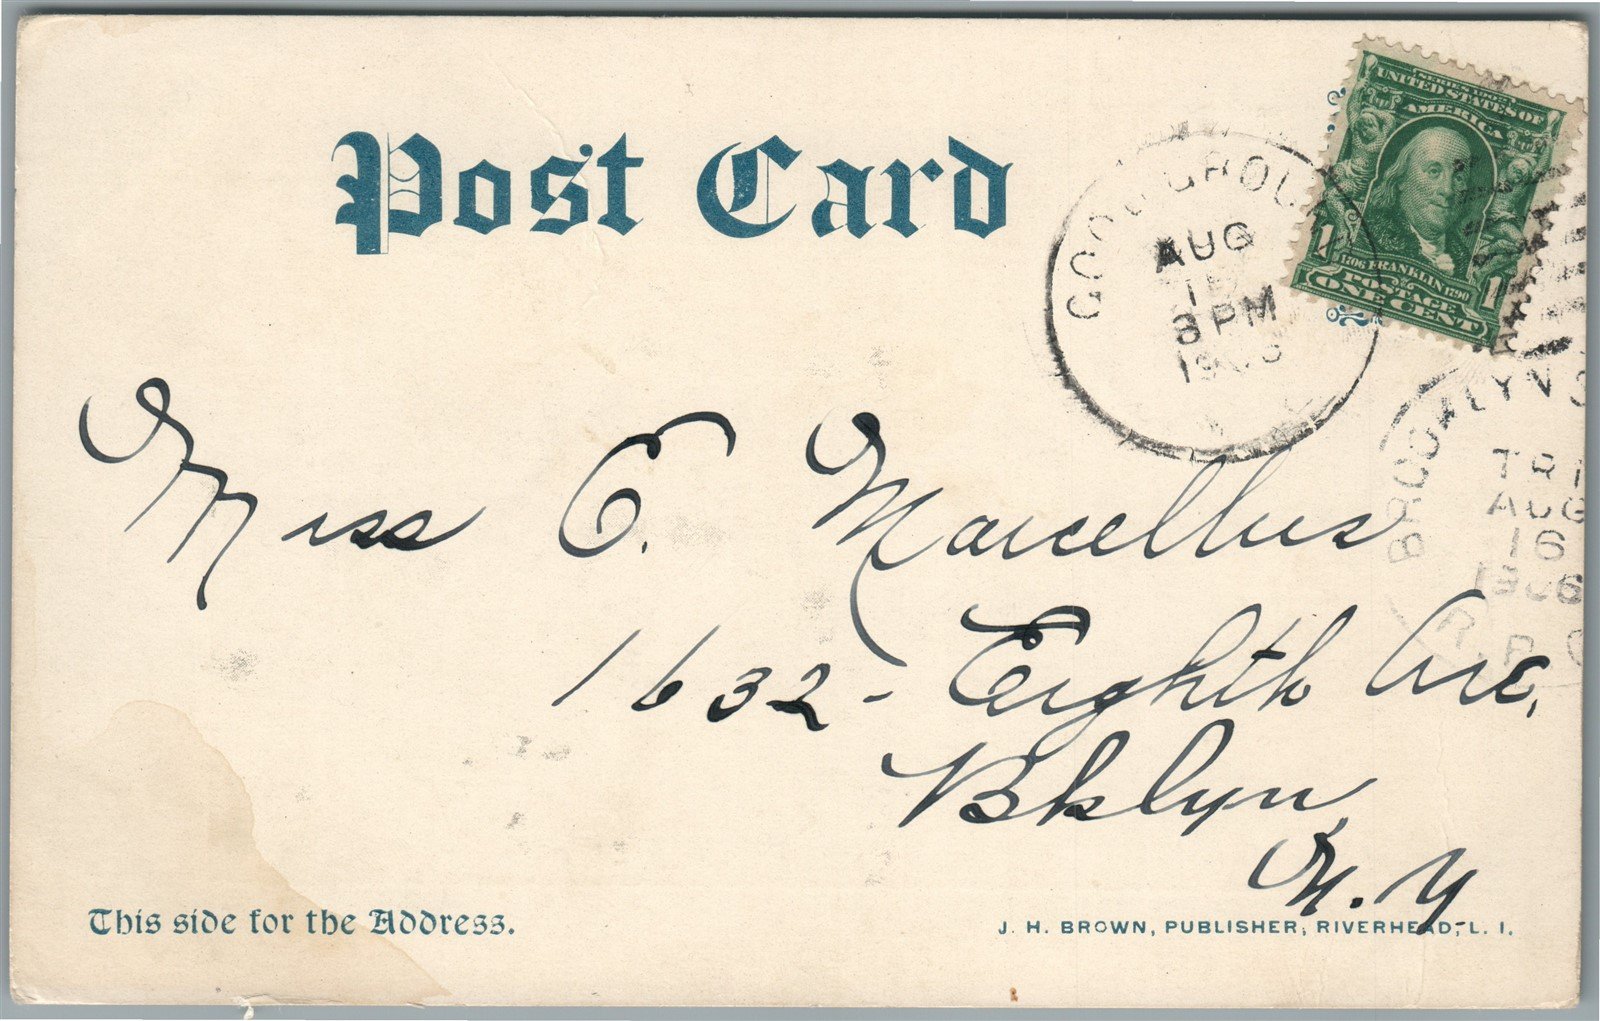 Post Card
SERIES 1902
UNITED STATES OF
AMERICA
1706 FRANKLIN 1790
1 1
POSTAGE
ONE CENT
AUG
3 PM
BROOKLYN
AUG
16
1906
R.P.
Miss E. Marcellus
1632 - Eighth Ave,
Bklyn
N.Y.
This side for the Address.
J. H. BROWN, PUBLISHER, RIVERHEAD, L. I.